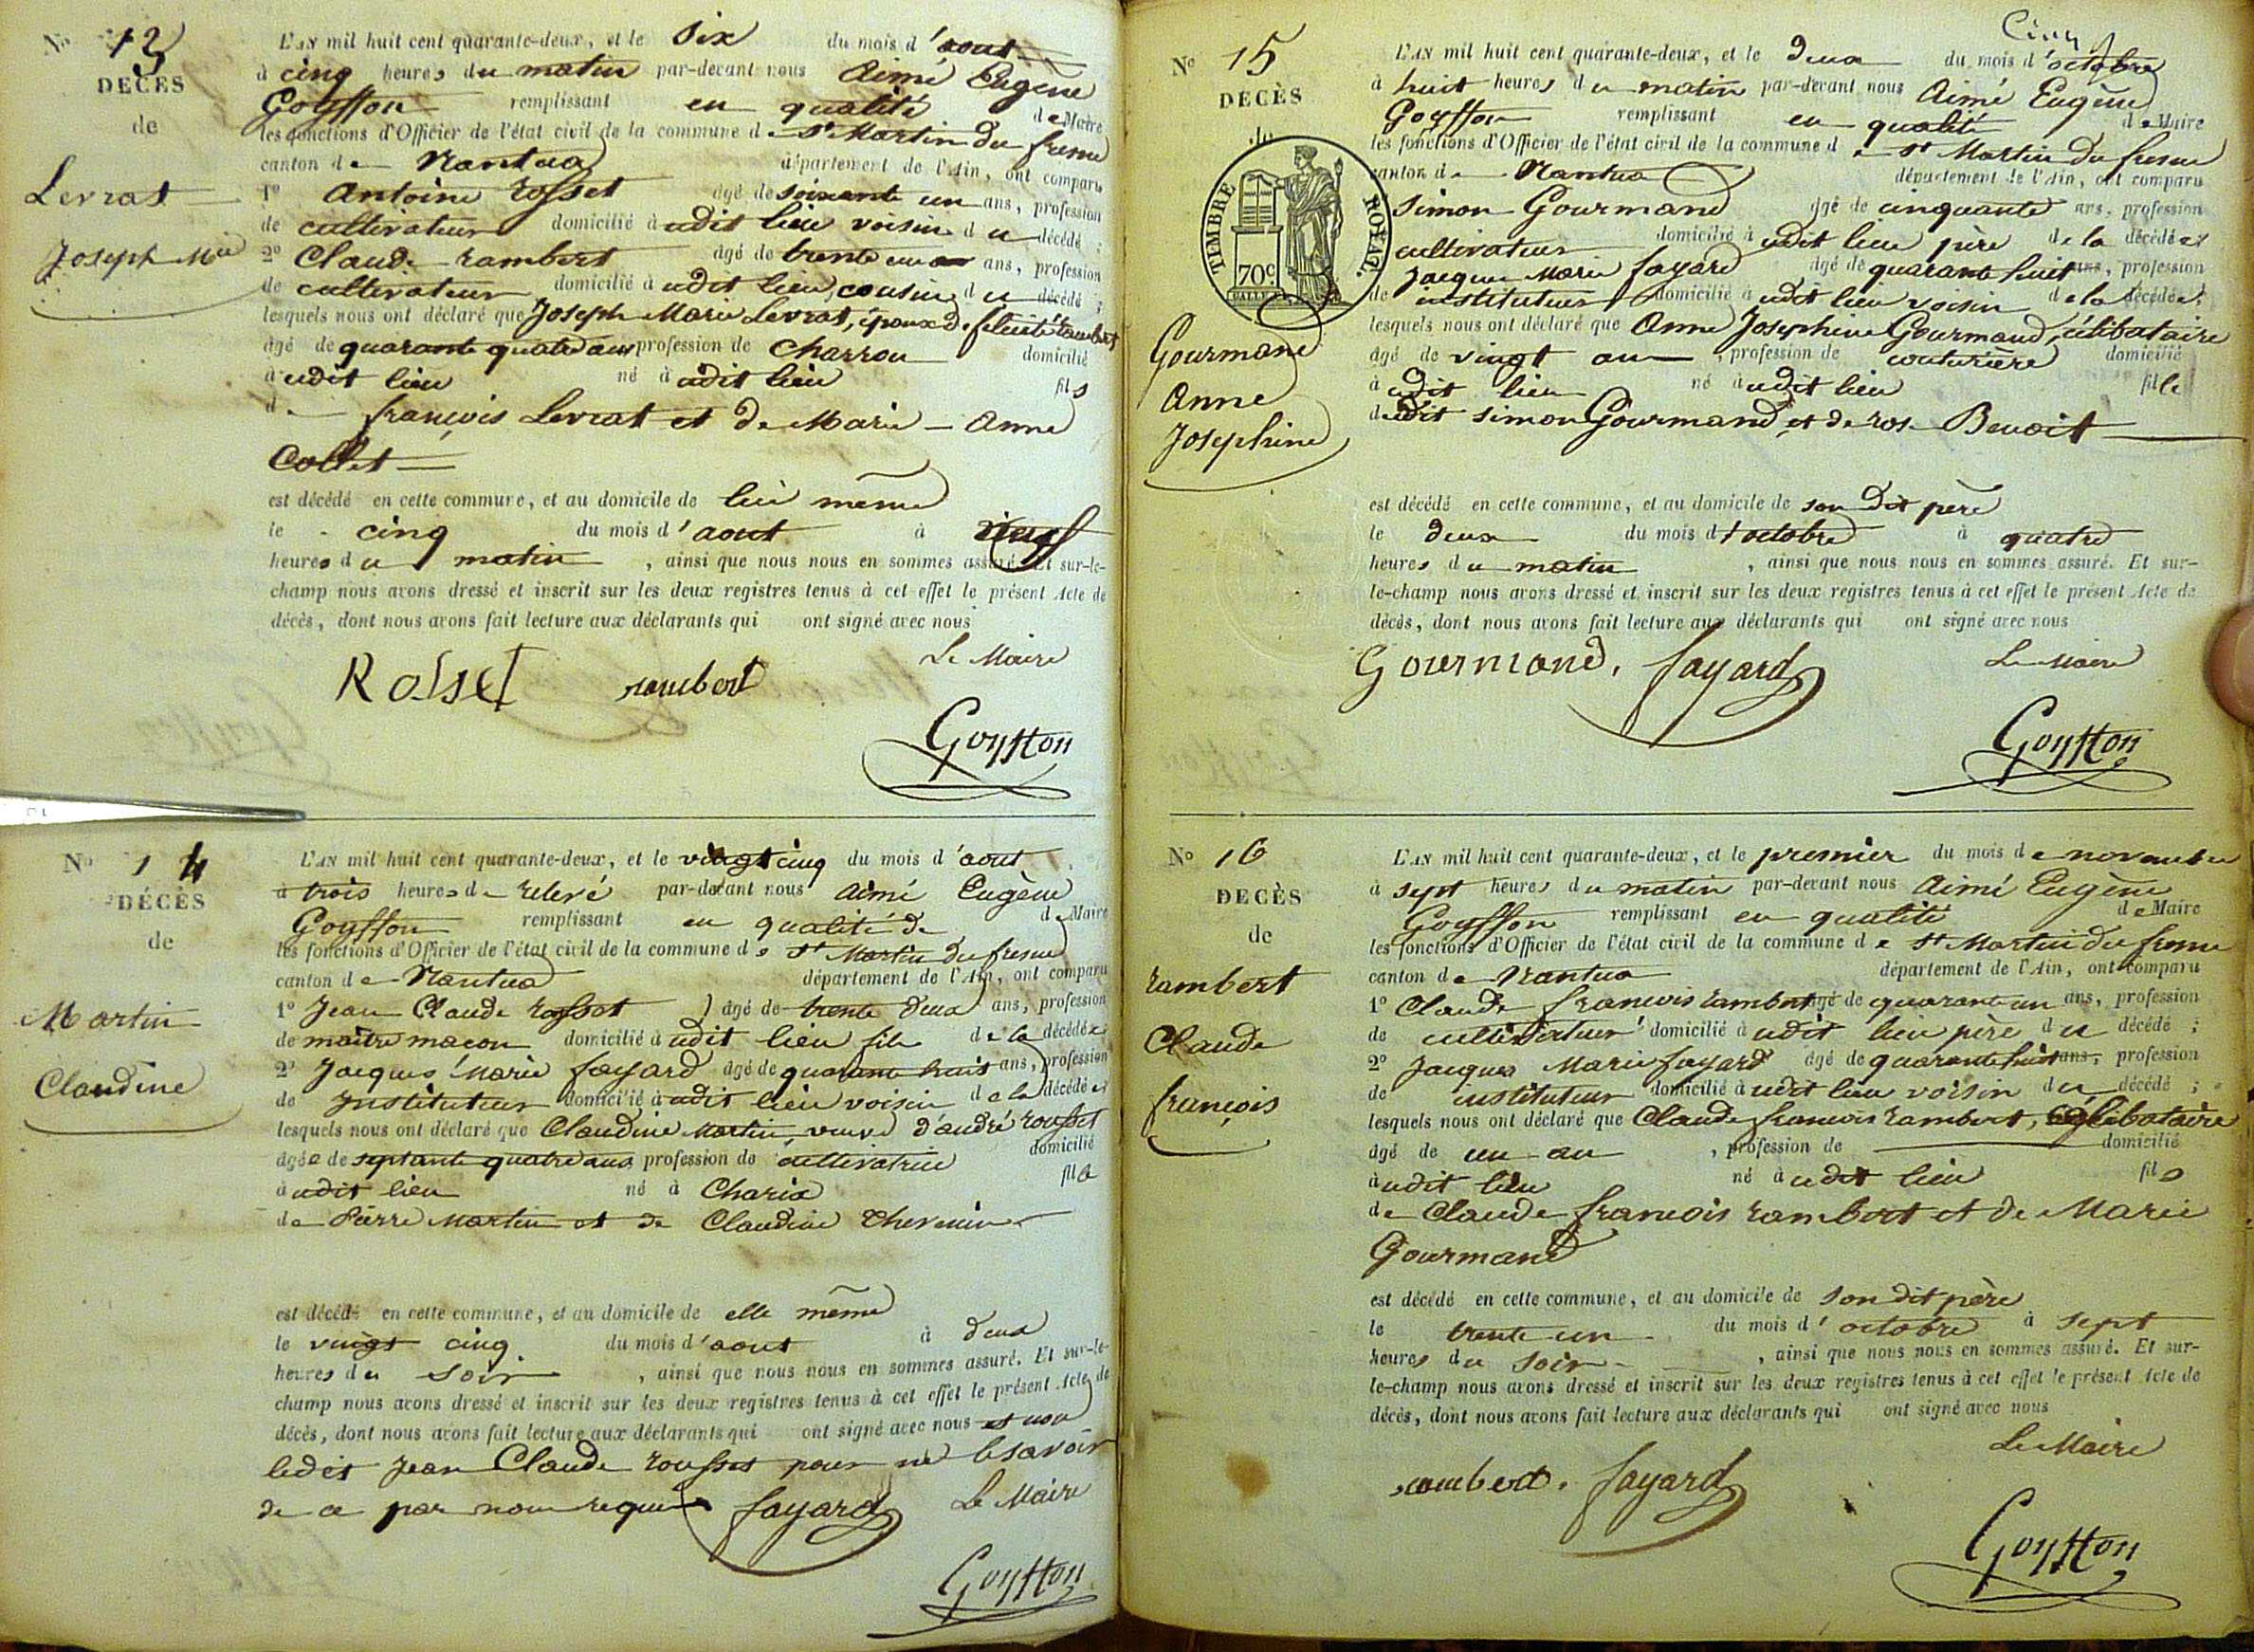 N° 13
DÉCÈS
de
Levrat
Joseph Mie
L'AN mil huit cent quarante-deux, et le six du mois d'aout
à cinq heures du matin par-devant nous Aimé Eugène
Goyffon remplissant en qualité de Maire
les fonctions d'Officier de l'état civil de la commune de St Martin du fresne
canton de Nantua département de l'Ain, ont comparu
1° Antoine rosset âgé de soixante un ans, profession
de cultivateur domicilié à udit lieu voisin du décédé ;
2° Claude rambert âgé de trente ans, profession
de cultivateur domicilié à udit lieu, cousin du décédé ;
lesquels nous ont déclaré que Joseph Marie Levrat, époux de felicité rambert
âgé de quarante quatre ans profession de charron domicilié
à udit lieu né à udit lieu fils
de françois Levrat et de Marie-Anne
Collet
est décédé en cette commune, et au domicile de lui même
le cinq du mois d'aout à neuf
heures du matin, ainsi que nous nous en sommes assuré. Et sur-le-
champ nous avons dressé et inscrit sur les deux registres tenus à cet effet le présent Acte de
décès, dont nous avons fait lecture aux déclarants qui ont signé avec nous
Le Maire
Rosset rambert
Goyffon
N° 14
DÉCÈS
de
Martin
Claudine
L'AN mil huit cent quarante-deux, et le vingt cinq du mois d'aout
à trois heures de relevé par-devant nous aimé Eugène
Goyffon remplissant en qualité de de Maire
les fonctions d'Officier de l'état civil de la commune de St Martin du fresne
canton de Nantua département de l'Ain, ont comparu
1° Jean Claude rosset âgé de trente deux ans, profession
de maître maçon domicilié à udit lieu fils de la décédée
2° Jacques Marie fayard âgé de quarante huit ans, profession
de Instituteur domicilié à udit lieu voisin de la décédée
lesquels nous ont déclaré que Claudine Martin, veuve d'andré rousset
âgée de septante quatre ans profession de cultivatrice domicilié
à udit lieu né à Charix fille
de Pierre Martin et de Claudine thevenin
est décédé en cette commune, et au domicile de elle même
le vingt cinq du mois d'aout à deux
heures du soir, ainsi que nous nous en sommes assuré. Et sur-le-
champ nous avons dressé et inscrit sur les deux registres tenus à cet effet le présent Acte de
décès, dont nous avons fait lecture aux déclarants qui ont signé avec nous et non
ledit Jean Claude rousset pour ne le savoir
de ce par nous requis fayard Le Maire
Goyffon
Cinq
N° 15
DÉCÈS
de
TIMBRE ROYAL.
70c
Gourmand
Anne
Josephine
L'AN mil huit cent quarante-deux, et le deux du mois d'octobre
à huit heures du matin par-devant nous Aimé Eugène
Goyffon remplissant en qualité de Maire
les fonctions d'Officier de l'état civil de la commune de St Martin du fresne
canton de Nantua département de l'Ain, ont comparu
Simon Gourmand âgé de cinquante ans, profession
cultivateur domicilié à udit lieu père de la décédée
Jacques Marie fayard âgé de quarante huit ans, profession
de instituteur domicilié à udit lieu voisin de la décédée ;
lesquels nous ont déclaré que Anne Josephine Gourmand, célibataire
âgé de vingt an, profession de couturière domicilié
à udit lieu né à udit lieu fille
de udit simon Gourmand et de rose Benoit
est décédé en cette commune, et au domicile de son dit père
le deux du mois d'octobre à quatre
heures du matin, ainsi que nous nous en sommes assuré. Et sur-
le-champ nous avons dressé et inscrit sur les deux registres tenus à cet effet le présent Acte de
décès, dont nous avons fait lecture aux déclarants qui ont signé avec nous
Gourmand, fayard Le Maire
Goyffon
N° 16
DÉCÈS
de
rambert
Claude
françois
L'AN mil huit cent quarante-deux, et le premier du mois de novembre
à sept heures du matin par-devant nous Aimé Eugène
Goyffon remplissant en qualité de Maire
les fonctions d'Officier de l'état civil de la commune de St Martin du fresne
canton de Nantua département de l'Ain, ont comparu
1° Claude françois rambert âgé de quarante un ans, profession
de cultivateur domicilié à udit lieu père du décédé ;
2° Jacques Marie fayard âgé de quarante huit ans, profession
de instituteur domicilié à udit lieu voisin du décédé ;
lesquels nous ont déclaré que Claude françois rambert, célibataire
âgé de un an, profession de domicilié
à udit lieu né à udit lieu fils
de Claude françois rambert et de Marie
Gourmand
est décédé en cette commune, et au domicile de son dit père
le trente un du mois d'octobre à sept
heures du soir, ainsi que nous nous en sommes assuré. Et sur-
le-champ nous avons dressé et inscrit sur les deux registres tenus à cet effet le présent Acte de
décès, dont nous avons fait lecture aux déclarants qui ont signé avec nous
Le Maire
rambert. fayard
Goyffon